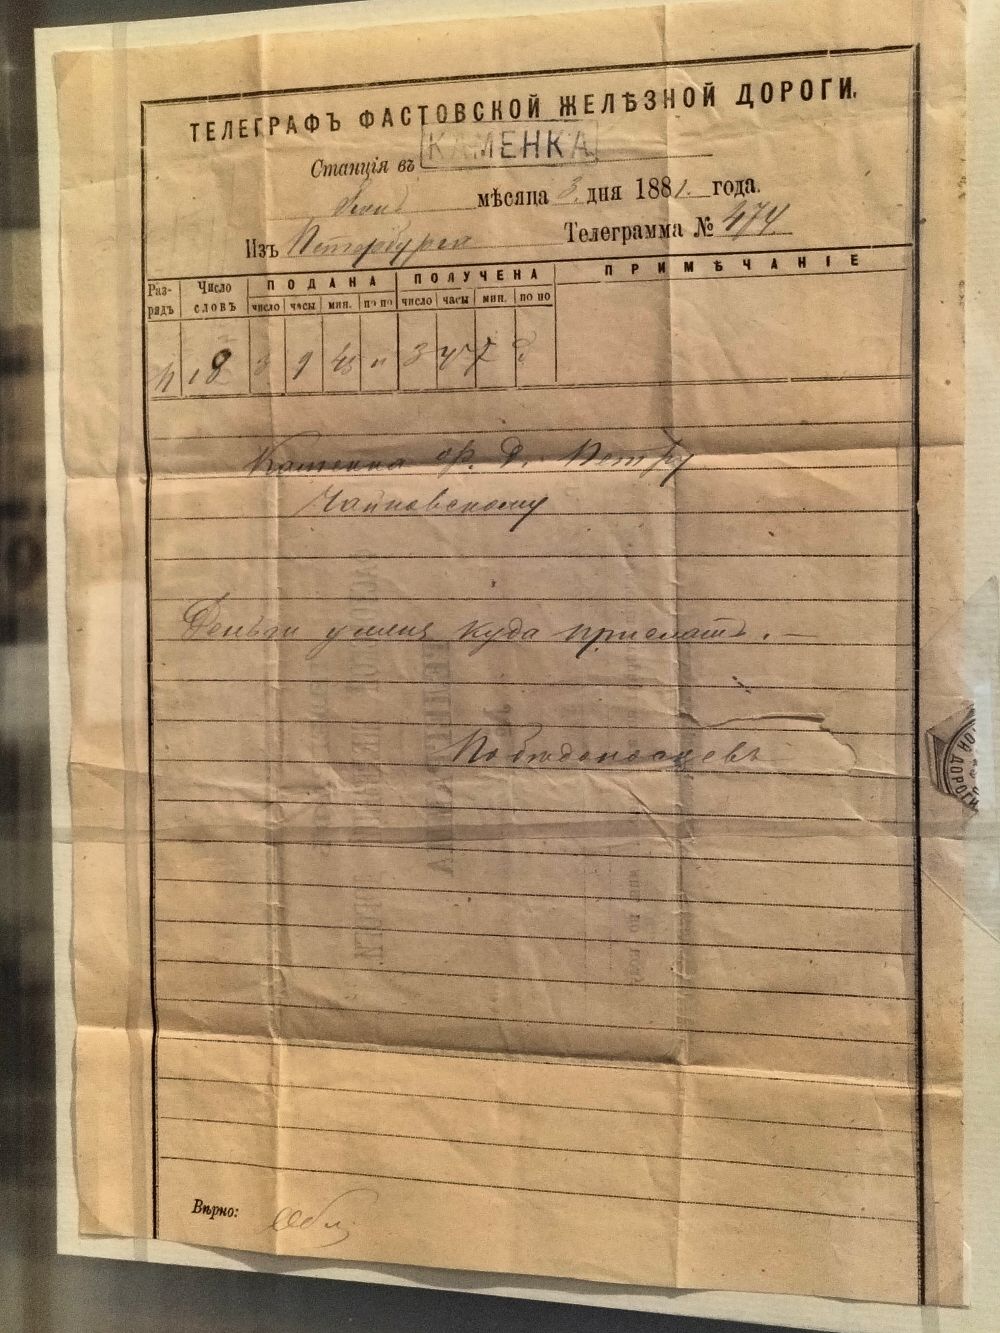 ТЕЛЕГРАФЪ ФАСТОВСКОЙ ЖЕЛѢЗНОЙ ДОРОГИ.
Станція въ КАМЕНКА
мѣсяца 3 дня 1881 года.
Изъ Петербурга Телеграмма № 474
Раз-рядъ Число словъ ПОДАНА ПОЛУЧЕНА ПРИМѢЧАНІЕ
число часы мин. по по число часы мин. по по
18 3 9 45 п 3
Каменка Ф. Д. Петру
Чайковскому
Деньги у меня куда прислать. —
Побѣдоносцевъ
ОЙ ДОРОГИ
Вѣрно: